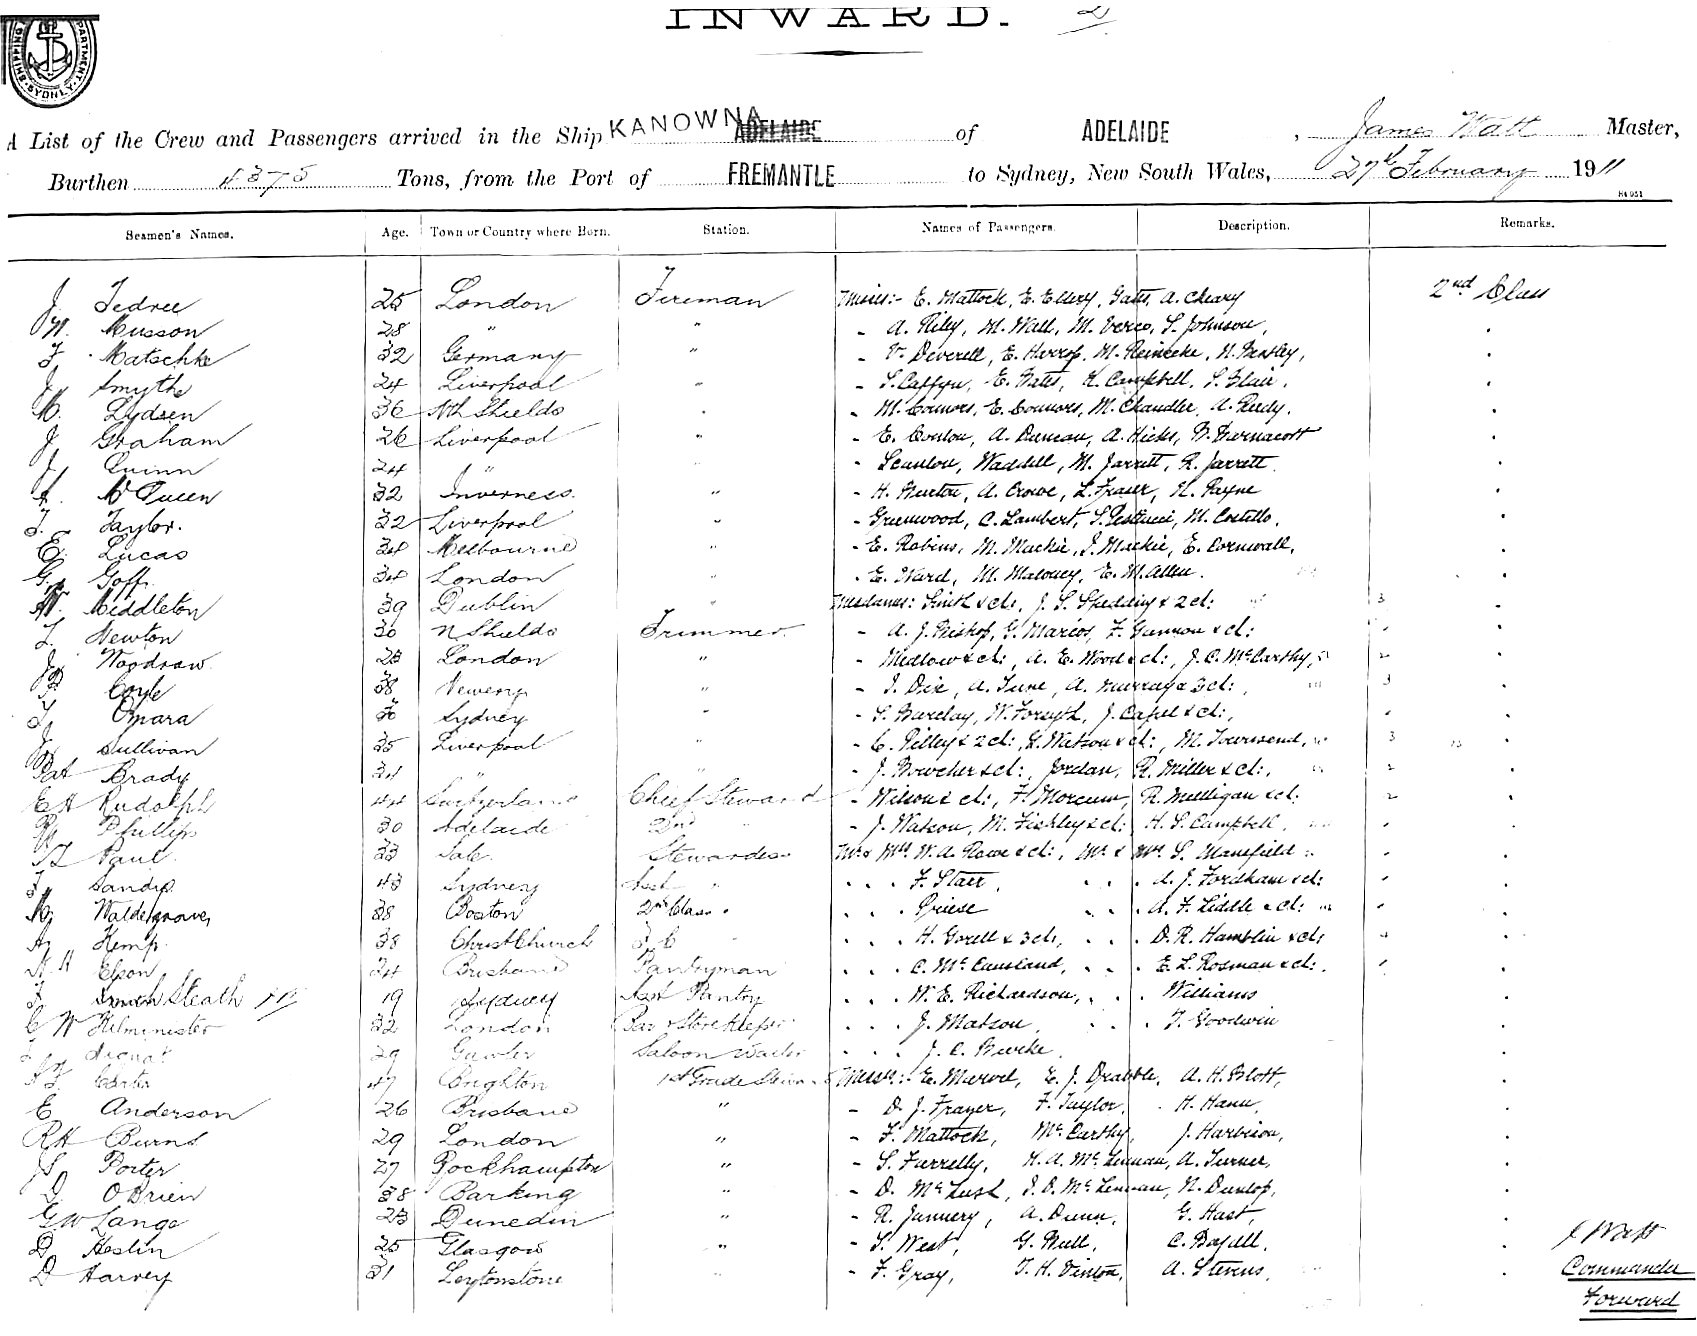 INWARD. 2
SHIPPING DEPARTMENT. SYDNEY.
A List of the Crew and Passengers arrived in the Ship KANOWNA ADELAIDE of ADELAIDE , James Watt Master,
Burthen 4375 Tons, from the Port of FREMANTLE to Sydney, New South Wales, 27th February 1911
Seamen's Names. Age. Town or Country where Born. Station. Names of Passengers. Description. Remarks.
J. Tedree 25 London Fireman Misses:- E. Mattock, E. Ellery, Gates, A. Cleary 2nd Class
W. Musson 28 " " - A. Riley, M. Wall, M. Verco, S. Johnson,
F. Matschke 32 Germany " - V. Deverell, E. Harrop, M. Reinecke, N. Bastley,
J. Smythe 24 Liverpool " - S. Caffyn, E. Bates, K. Campbell, S. Blair,
M. Lydsen 36 Nth Shields " - M. Connors, E. Connors, M. Chandler, A. Reedy,
J. Graham 26 Liverpool " - E. Conlon, A. Duncan, A. Hicks, B. Burnacott
J. Quinn 24 " - Scanlon, Waddell, M. Jarrett, R. Jarrett
A. McQueen 32 Inverness " - H. Burton, A. Crowe, L. Fraser, N. Payne
T. Taylor. 32 Liverpool " - Greenwood, C. Lambert, S. Pestucci, M. Costello,
E. Lucas 34 Melbourne " - E. Robins, M. Mackie, J. Mackie, E. Cornwall,
G. Goff. 34 London " - E. Ward, M. Maloney, E. M. Allen.
W. Middleton 39 Dublin " Mesdames: Smith & ch:, J. S. Spedding & 2 ch: 3
T. Newton 30 N Shields Trimmer - A. J. Bishop, G. Marios, F. Gannon & ch:
J. Woodrow 23 London " - Medlow & ch:, A. E. Wood & ch:, J. C. McCarthy, 2
P. Coyle 38 Newery " - J. Dix, A. June, A. Murray & 3 ch:, 3
T. Omara 30 Sydney " - S. Barclay, W. Forsyth, J. Capel & ch:,
J. Sullivan 35 Liverpool " - C. Pilley & 2 ch:, G. Watson & ch:, M. Townsend, 3
Pat Brady 34 " " - J. Bowcher & ch:, Jordan, R. Miller & ch:, 2
E H Rudolph 44 Switzerland Chief Steward - Wilson & ch:, F. Morcum, R. Melligan & ch: 2
Phillips 30 Adelaide 2nd " - J. Watson, M. Fishley & ch: H. S. Campbell,
Paul 33 Sale Stewardess Mr & Mrs W. A. Rowe & ch:, Mr & Mrs S. Mansfield
Sandys 43 Sydney Asst " . . . F. Starr, . . . A. J. Fordham & ch:
Waldegrave 38 Boston 2nd Class " . . . Priese . . . A. F. Liddle & ch:
Kemp 38 ChristChurch . . . H. Gorell & 3 ch:, . . . D. R. Hamblin & ch:
Elson 24 Brisbane Pantryman . . . C. McCausland, . . . E. L. Rosman & ch:,
Steath 19 Sydney Asst Pantry . . . W. E. Richardson, . . . Williams
C W Kilminister 32 London Bar & Storekeeper . . . J. Matson, . . . T. Goodwin
29 Gawler Saloon Waiter . . . J. C. Burke,
Carter 47 Brighton 1st Grade Steward Messrs:- E. Marvel, E. J. Drabble, A. H. Blott,
E Anderson 26 Brisbane " - D. J. Frayer, F. Taylor, H. Hann,
R H Burns 29 London " - F. Mattock, McCarthy, J. Harbison,
S. Porter 27 Rockhampton " - S. Farrelly, H. A. McLennan, A. Turner,
D. OBrien 38 Barking " - D. McLush, J. D. McLennan, N. Dunlop,
G W Lange 23 Dunedin " - R. Jannery, A. Dunn, G. Hast,
D. Heslin 25 Glasgow " - S. West, G. Bull, C. Bagall,
D Harvey 31 Leytonstone " - F. Gray, T. H. Vinton, A. Stevens,
J Watt
Commander
Forward